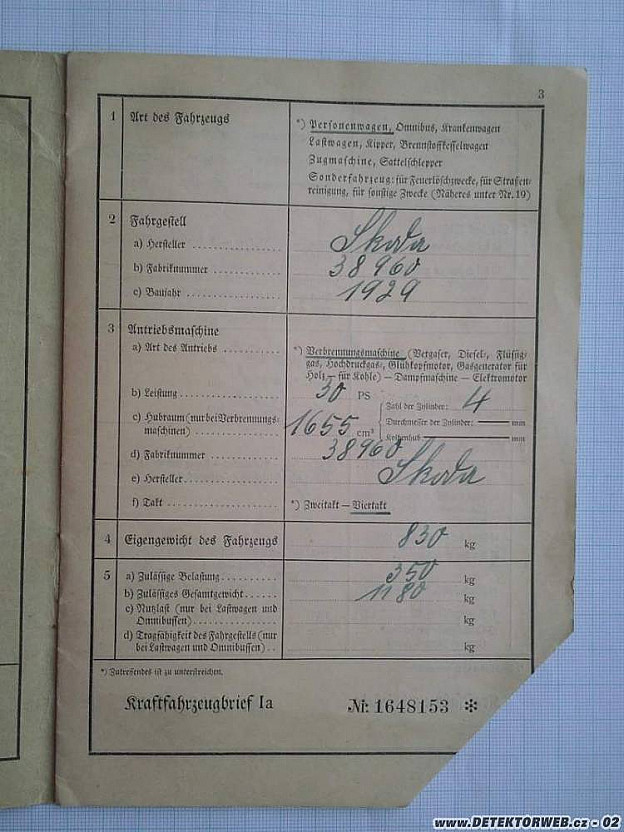 3
1 Art des Fahrzeugs
*) Personenwagen, Omnibus, Krankenwagen
Lastwagen, Kipper, Brennstoffkesselwagen
Zugmaschine, Sattelschlepper
Sonderfahrzeug: für Feuerlöschzwecke, für Straßen-
reinigung, für sonstige Zwecke (Näheres unter Nr. 19)
2 Fahrgestell
a) Hersteller Skoda
b) Fabriknummer 38960
c) Baujahr 1929
3 Antriebsmaschine
a) Art des Antriebs
*) Verbrennungsmaschine (Vergaser, Diesel-, Flüssig-
gas, Hochdruckgas, Glühkopfmotor, Gasgenerator für
Holz — für Kohle) — Dampfmaschine — Elektromotor
b) Leistung 30 PS
Zahl der Zylinder: 4
c) Hubraum (nur bei Verbrennungs-
maschinen) 1655 cm³
Durchmesser der Zylinder: mm
Kolbenhub mm
d) Fabriknummer 38960
e) Hersteller Skoda
f) Takt *) Zweitakt — Viertakt
4 Eigengewicht des Fahrzeugs 830 kg
5 a) Zulässige Belastung 350 kg
b) Zulässiges Gesamtgewicht 1180 kg
c) Nutzlast (nur bei Lastwagen und
Omnibussen) kg
d) Tragfähigkeit des Fahrgestells (nur
bei Lastwagen und Omnibussen) kg
*) Zutreffendes ist zu unterstreichen.
Kraftfahrzeugbrief Ia № 1648153 ✻
www.DETEKTORWEB.cz - 02